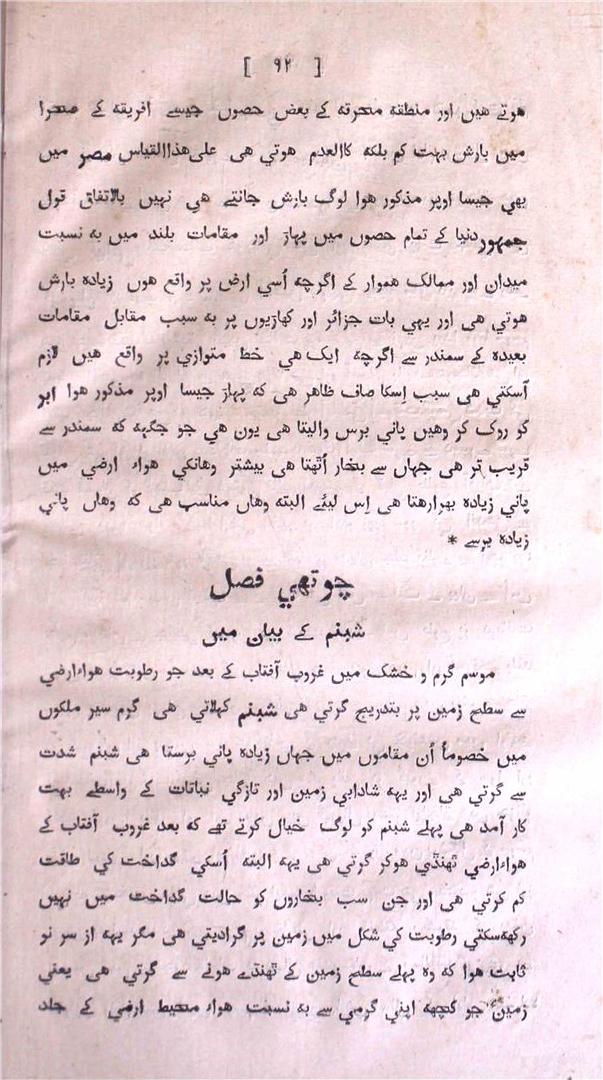 [ ۹۲ ]
هوتے هیں اور منطقه محترقه کے بعض حصوں جیسے افریقه کے صحرا
میں بارش بهت کم بلکه کالعدم هوتي هی علی هذاالقیاس مصر میں
بهي جیسا اوپر مذکور هوا لوگ بارش جانتے هي نهیں بالاتفاق قول
جمهور دنیا کے تمام حصوں میں پهاڑ اور مقامات بلند میں به نسبت
میدان اور ممالک هموار کے اگرچه اُسي ارض پر واقع هوں زیاده بارش
هوتي هی اور یهي بات جزائر اور کهاڑیوں پر به سبب مقابل مقامات
بعیده کے سمندر سے اگرچه ایک هي خط متوازي پر واقع هیں لازم
آسکتي هی سبب اِسکا صاف ظاهر هی که پهاڑ جیسا اوپر مذکور هوا ابر
کو روک کر وهیں پاني برس والیتا هی یون هي جو جگهه که سمندر سے
قریب تر هی جهاں سے بخار اُٹهتا هی بیشتر وهانکي هواء ارضي میں
پاني زیاده بهرارهتا هی اِس لیئے البته وهاں مناسب هی که وهاں پاني
زیاده برسے *
چوتهي فصل
شبنم کے بیان میں
موسم گرم و خشک میں غروب آفتاب کے بعد جو رطوبت هواءارضي
سے سطح زمین پر بتدریج گرتي هی شبنم کهلاتي هی گرم سیر ملکوں
میں خصوصاً اُن مقاموں میں جهاں زیاده پاني برستا هی شبنم شدت
سے گرتي هی اور یهه شادابي زمین اور تازگي نباتات کے واسطے بهت
کار آمد هی پهلے شبنم کو لوگ خیال کرتے تهے که بعد غروب آفتاب کے
هواءارضي ٹهنڈي هوکر گرتي هی یهه البته اُسکي گداخت کي طاقت
کم کرتي هی اور جن سب بخاروں کو حالت گداخت میں نهیں
رکهه‌سکتي رطوبت کي شکل میں زمین پر گرادیتي هی مگر یهه از سر نو
ثابت هوا که وه پهلے سطح زمین کے ٹهنڈے هونے سے گرتي هی یعني
زمین جو کچهه اپني گرمي سے به نسبت هواء محیط ارضي کے جلد